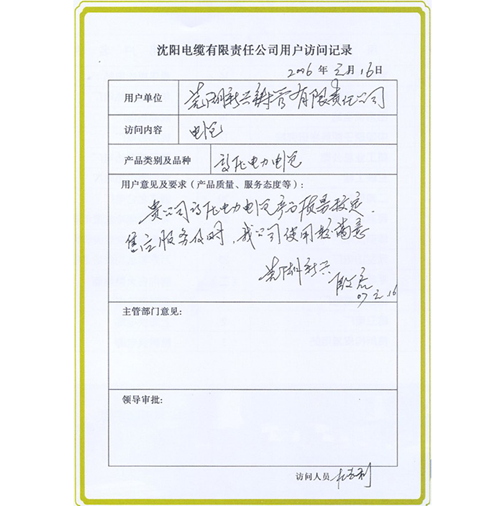 沈阳电缆有限责任公司用户访问记录
2006 年 元月 16日
用户单位 芜湖新兴铸管有限责任公司
访问内容 电缆
产品类别及品种 高压电力电缆
用户意见及要求（产品质量、服务态度等）：
贵公司高压电力电缆产品质量稳定，
售后服务及时，我公司使用较满意
芜湖新兴
07 元 16
主管部门意见：
领导审批：
访问人员